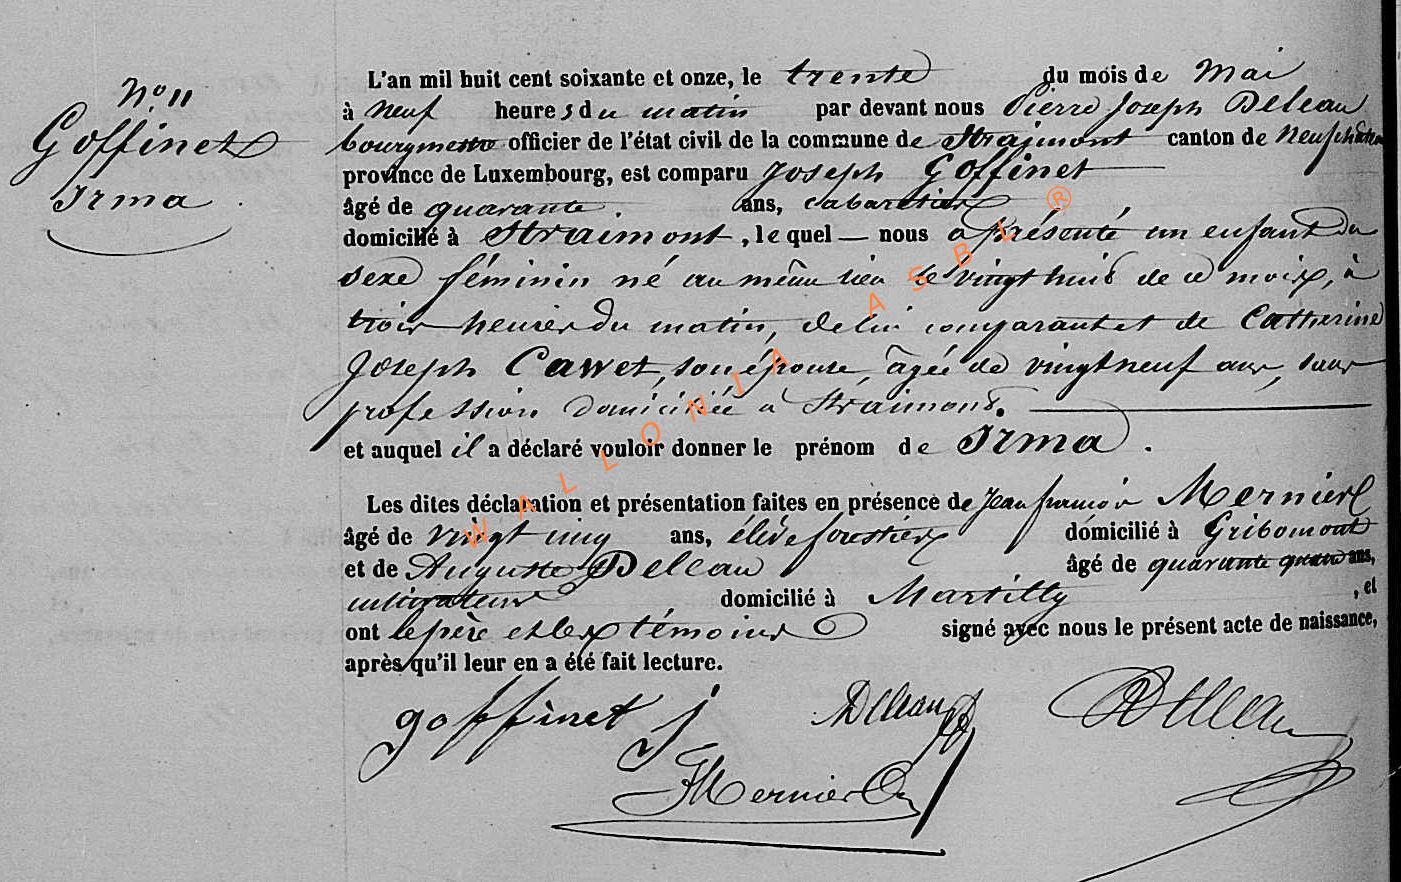 N° 11
Goffinet
Irma
L'an mil huit cent soixante et onze, le trente du mois de Mai
à neuf heures du matin par devant nous Pierre Joseph Deleau
bourgmestre officier de l'état civil de la commune de Straimont canton de Neufchâteau
province de Luxembourg, est comparu Joseph Goffinet
âgé de quarante ans, cabaretier
domicilié à Straimont, le quel — nous a présenté un enfant du
sexe féminin né au même lieu le vingt huit de ce mois, à
trois heures du matin, de lui comparant et de Catherine
Joseph Cawet, son épouse, âgée de vingt neuf ans, sans
profession domiciliée à Straimont.
et auquel il a déclaré vouloir donner le prénom de Irma.
Les dites déclaration et présentation faites en présence de Jean françois Mernier
âgé de vingt cinq ans, élève forestier domicilié à Gribomont
et de Auguste Deleau âgé de quarante quatre ans,
cultivateur domicilié à Martilly, et
ont le père et les témoins signé avec nous le présent acte de naissance,
après qu'il leur en a été fait lecture.
goffinet j Deleau Deleau
JMernier
WALLONIA ASBL ®